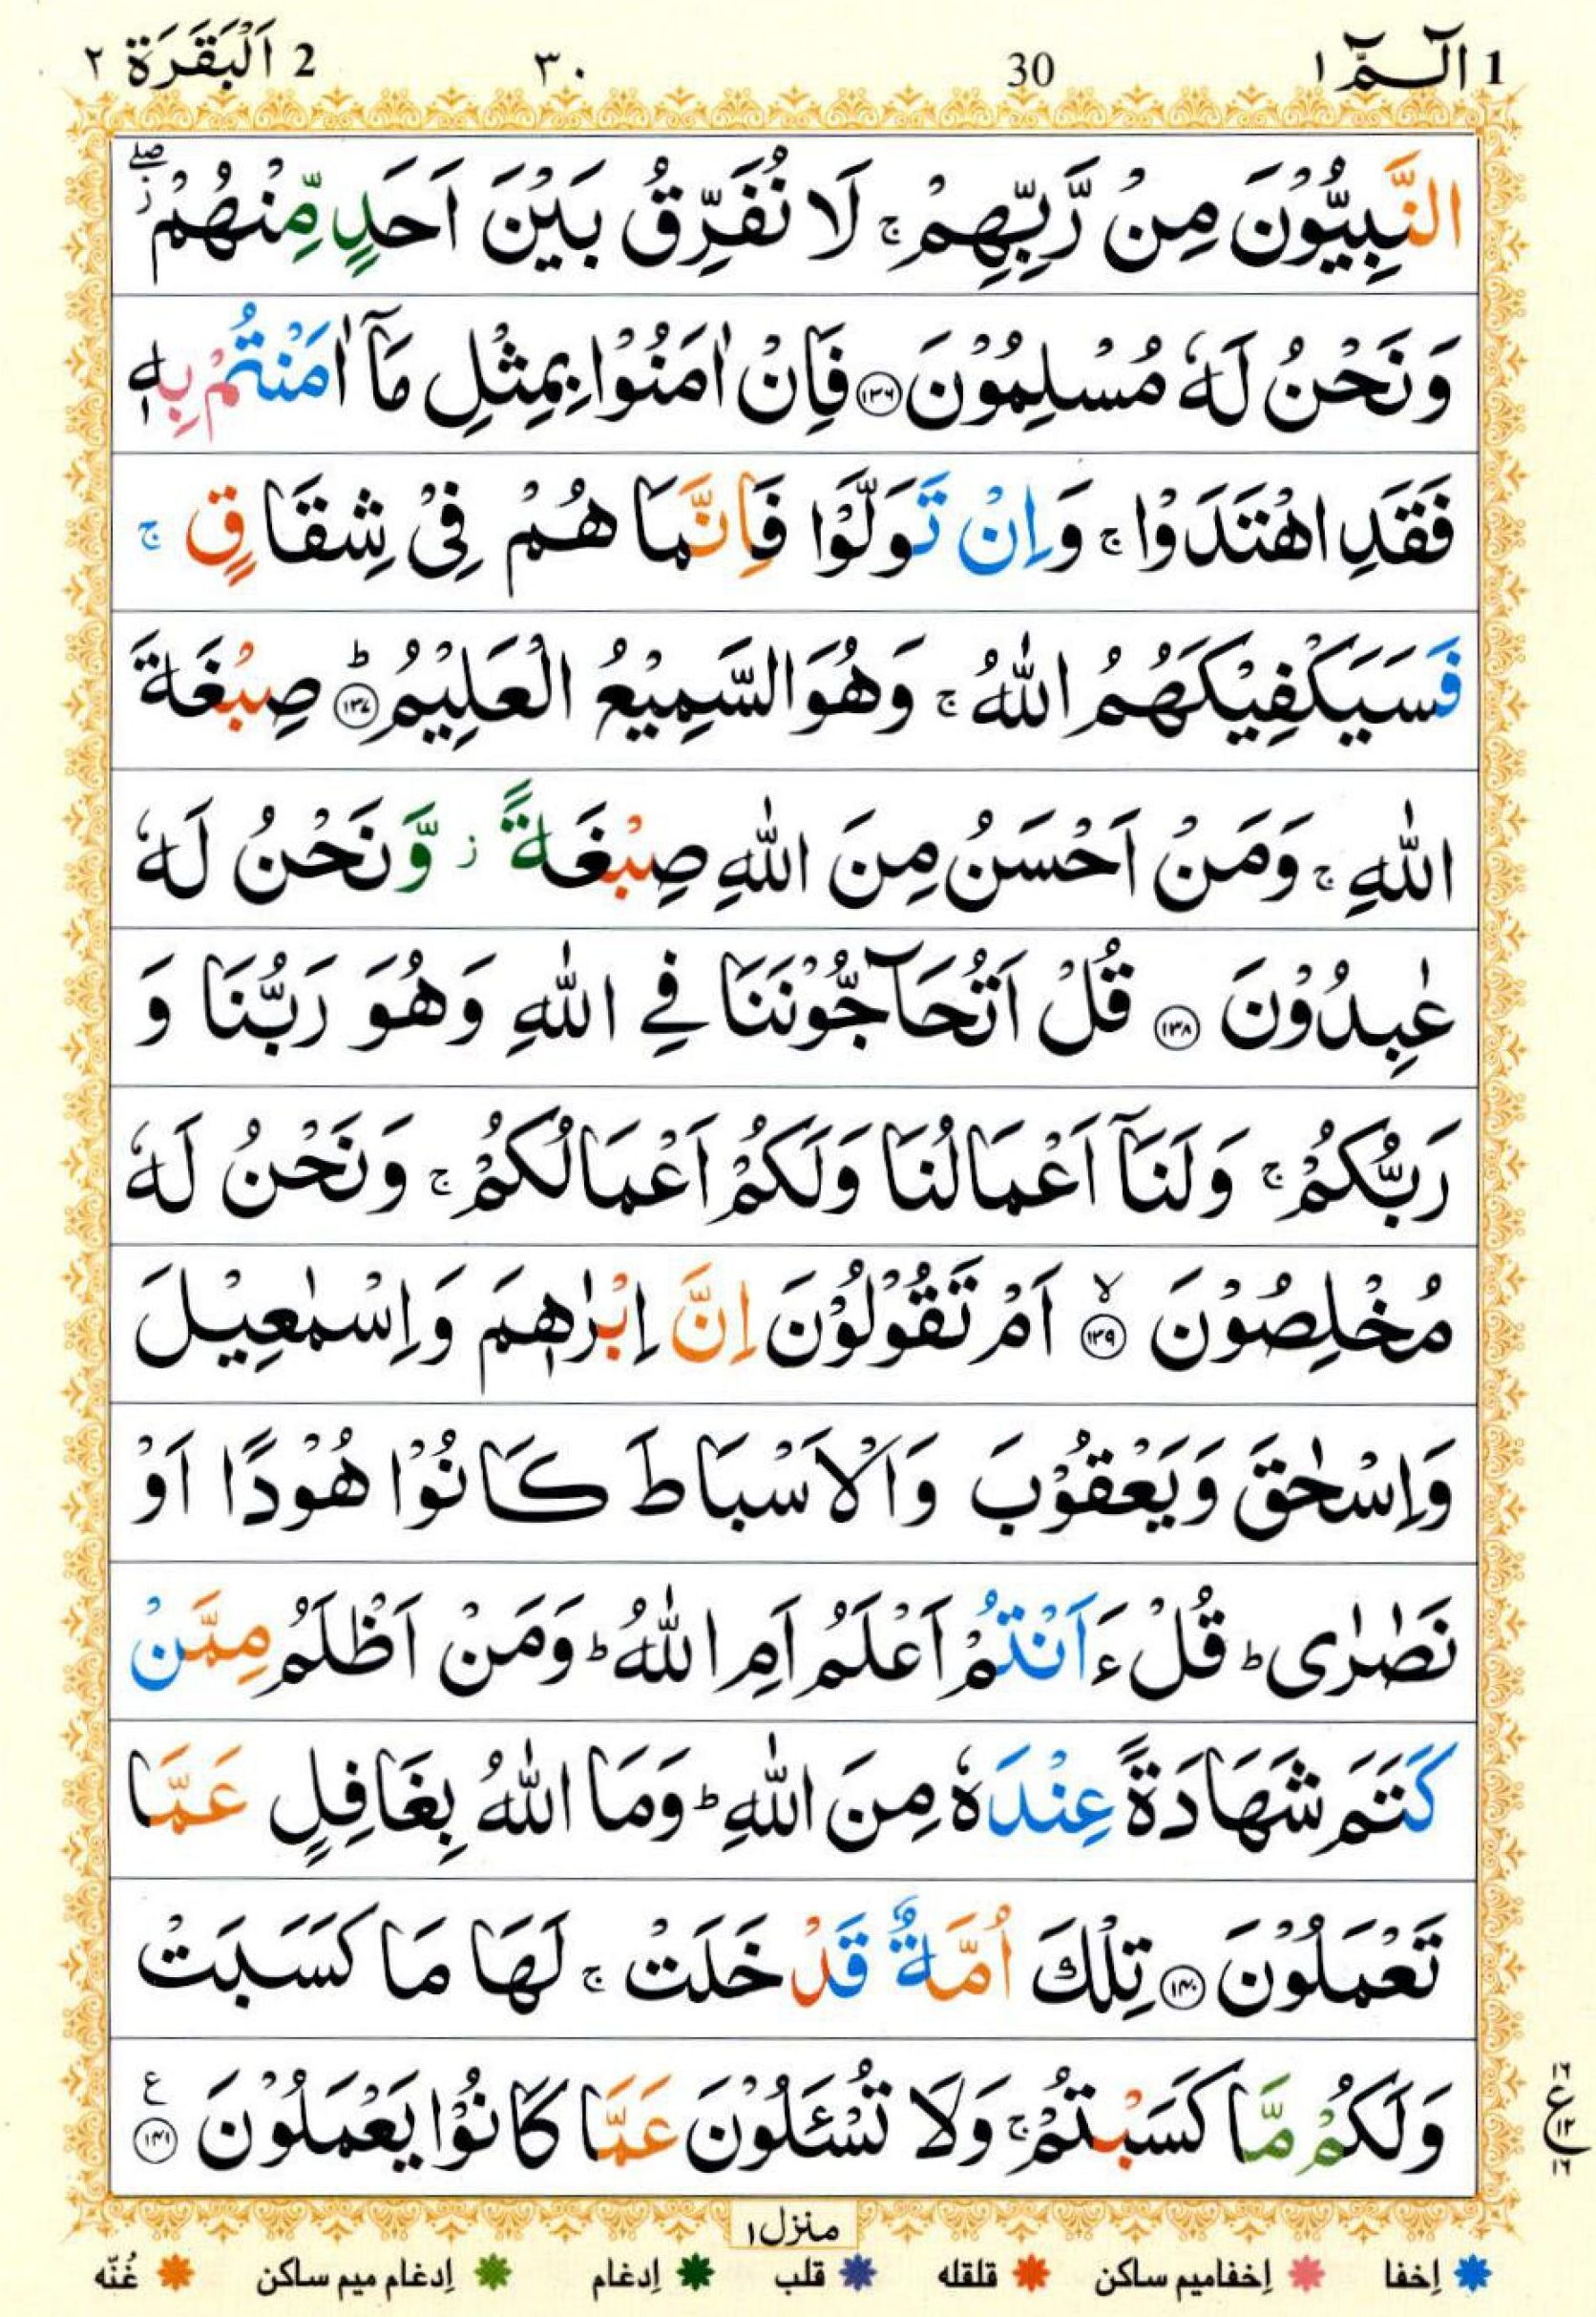 1 الٓـمّٓ ١ 30 ٣٠ 2 اَلْبَقَرَة ٢
النَّبِيُّوْنَ مِنْ رَّبِّهِمْ ۚ لَا نُفَرِّقُ بَيْنَ اَحَدٍ مِّنْهُمْ ۖ ز
وَنَحْنُ لَهٗ مُسْلِمُوْنَ ﴿١٣٦﴾ فَاِنْ اٰمَنُوْا بِمِثْلِ مَآ اٰمَنْتُمْ بِهٖ
فَقَدِ اهْتَدَوْا ۚ وَاِنْ تَوَلَّوْا فَاِنَّمَا هُمْ فِيْ شِقَاقٍ ۚ
فَسَيَكْفِيْكَهُمُ اللّٰهُ ۚ وَهُوَ السَّمِيْعُ الْعَلِيْمُ ؕ ﴿١٣٧﴾ صِبْغَةَ
اللّٰهِ ۚ وَمَنْ اَحْسَنُ مِنَ اللّٰهِ صِبْغَةً ز وَّنَحْنُ لَهٗ
عٰبِدُوْنَ ﴿١٣٨﴾ قُلْ اَتُحَآجُّوْنَنَا فِي اللّٰهِ وَهُوَ رَبُّنَا وَ
رَبُّكُمْ ۚ وَلَنَآ اَعْمَالُنَا وَلَكُمْ اَعْمَالُكُمْ ۚ وَنَحْنُ لَهٗ
مُخْلِصُوْنَ ۙ ﴿١٣٩﴾ اَمْ تَقُوْلُوْنَ اِنَّ اِبْرٰهٖمَ وَاِسْمٰعِيْلَ
وَاِسْحٰقَ وَيَعْقُوْبَ وَالْاَسْبَاطَ كَانُوْا هُوْدًا اَوْ
نَصٰرٰى ؕ قُلْ ءَاَنْتُمْ اَعْلَمُ اَمِ اللّٰهُ ؕ وَمَنْ اَظْلَمُ مِمَّنْ
كَتَمَ شَهَادَةً عِنْدَهٗ مِنَ اللّٰهِ ؕ وَمَا اللّٰهُ بِغَافِلٍ عَمَّا
تَعْمَلُوْنَ ﴿١٤٠﴾ تِلْكَ اُمَّةٌ قَدْ خَلَتْ ۚ لَهَا مَا كَسَبَتْ
وَلَكُمْ مَّا كَسَبْتُمْ ۚ وَلَا تُسْـَٔلُوْنَ عَمَّا كَانُوْا يَعْمَلُوْنَ ع ﴿١٤١﴾
١٦ ع ١٢ ١٦
منزل ١
إخفا إخفا ميم ساكن قلقله قلب إدغام إدغام ميم ساكن غُنّه